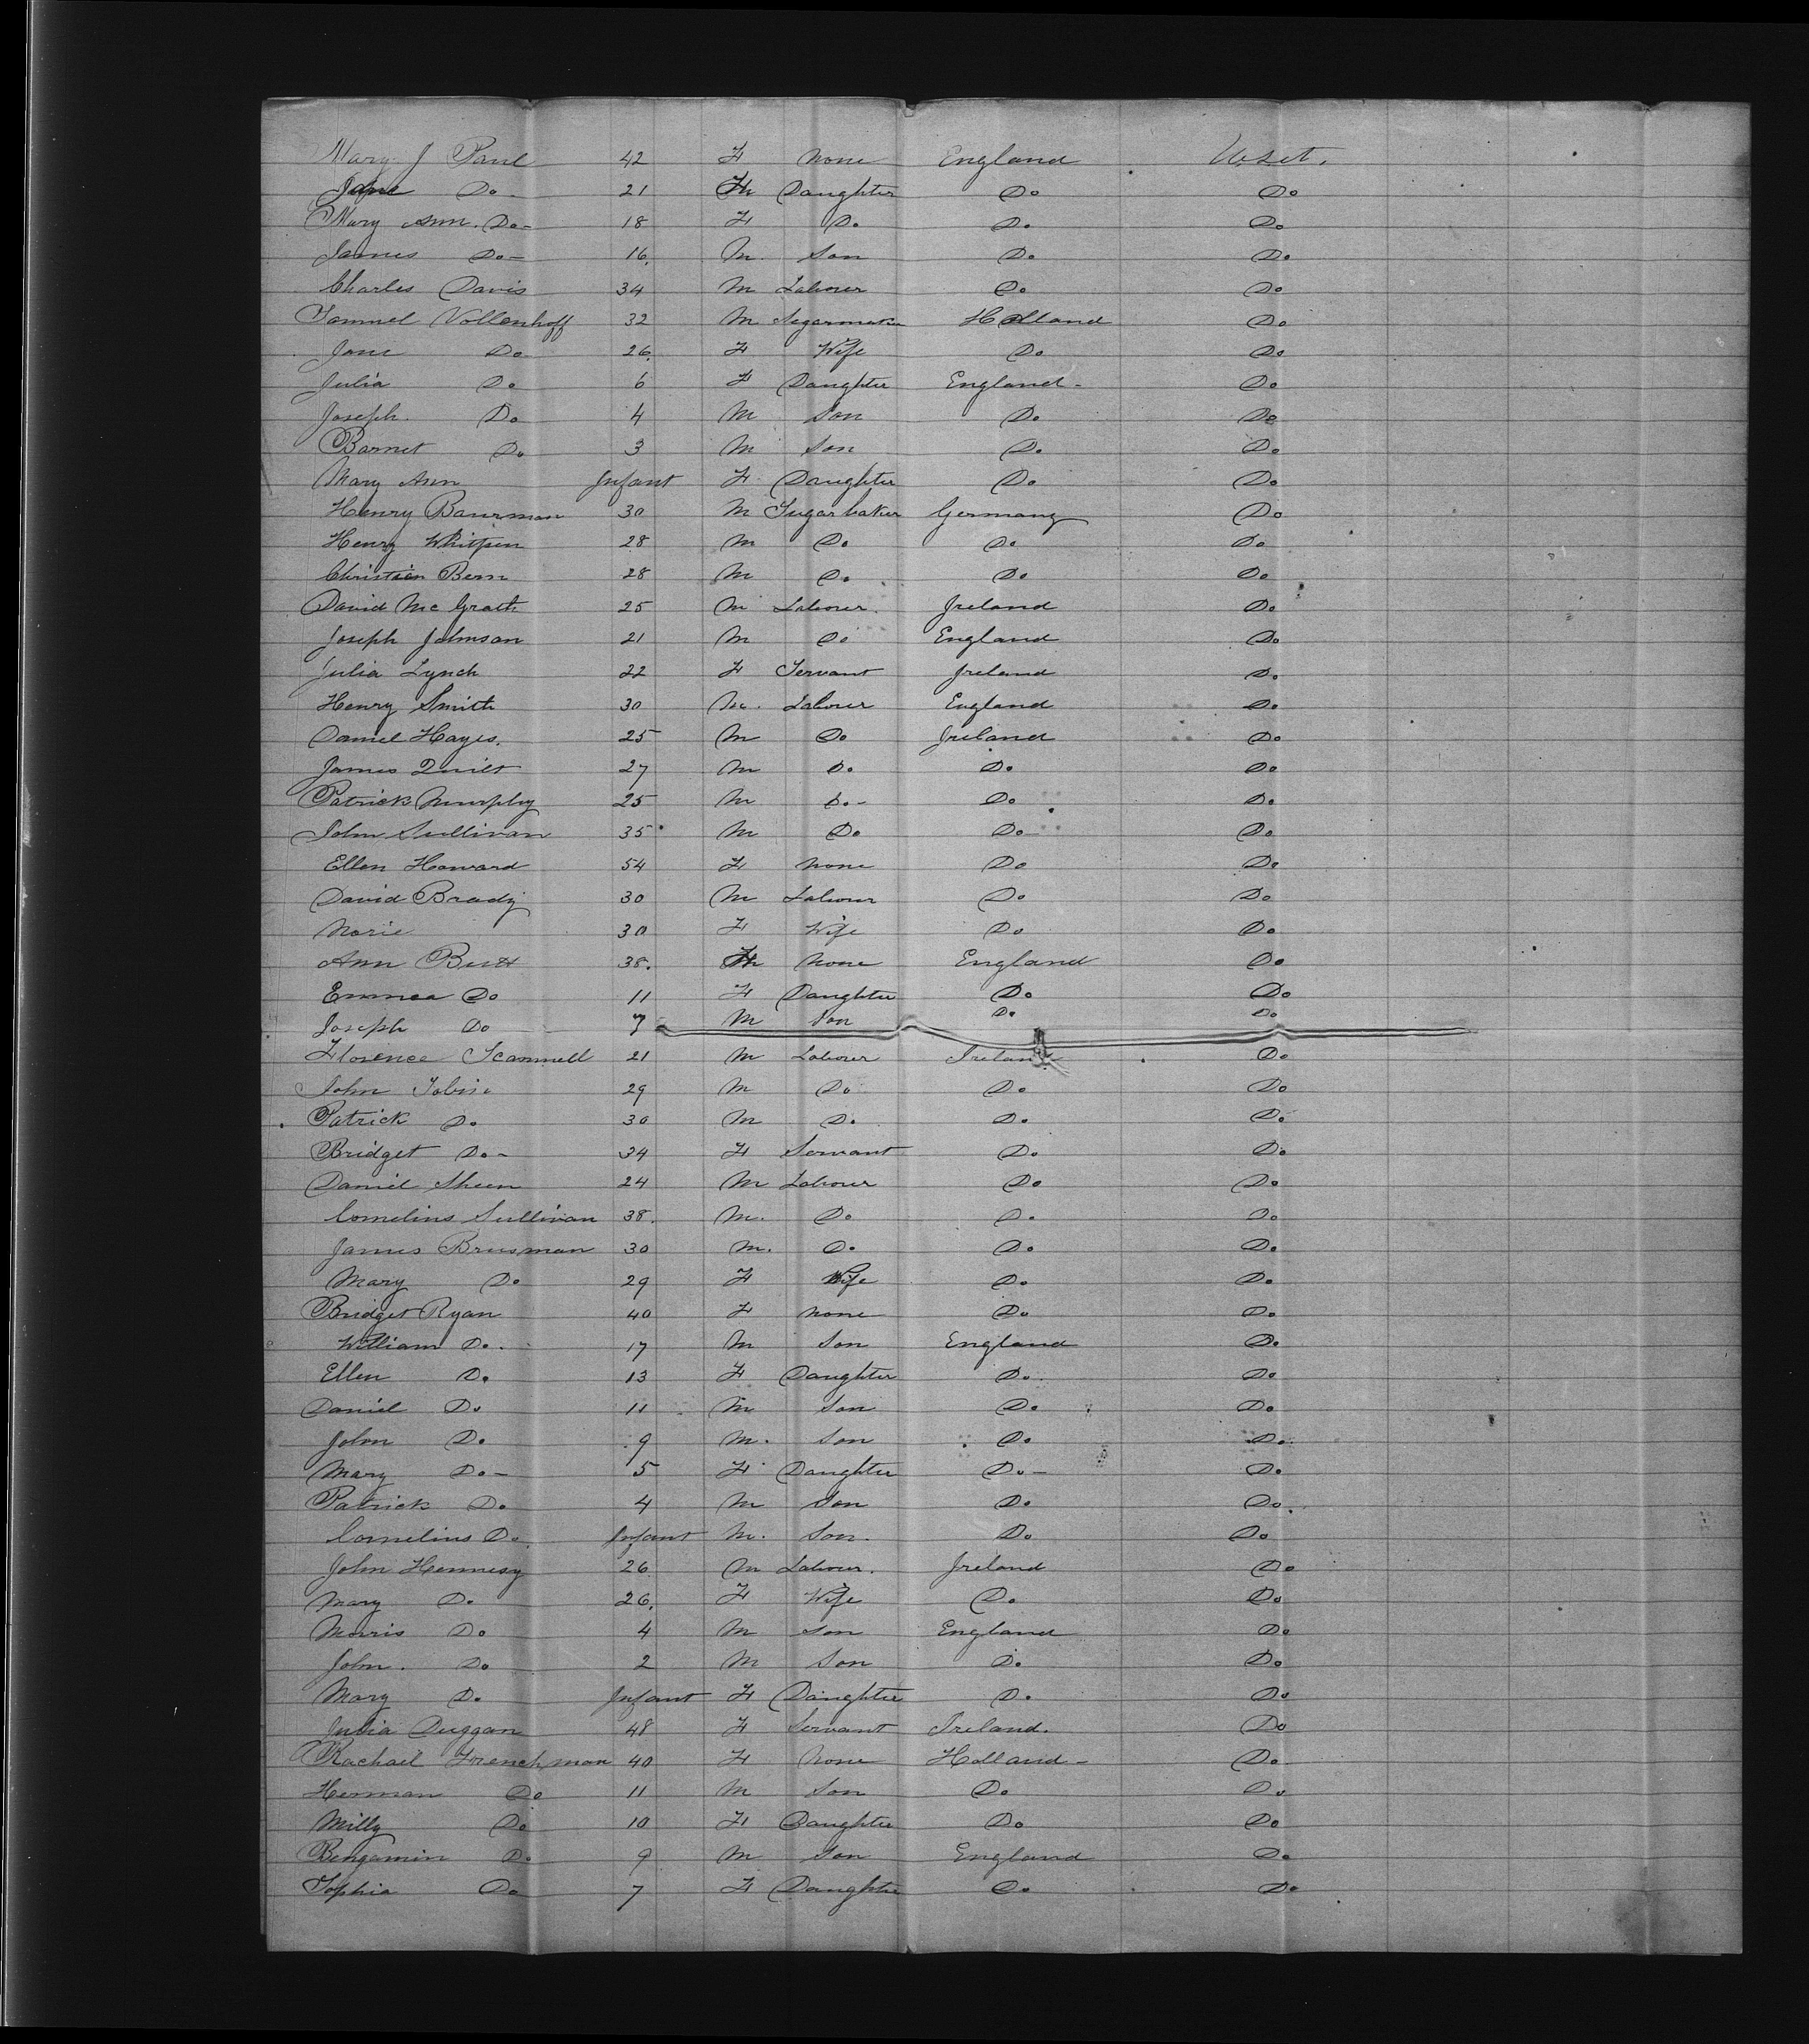 Mary J Paul 42 F None England U St.
Jane Do 21 F Daughter Do Do
Mary Ann. Do 18 F Do Do Do
James Do 16. M. Son Do Do
Charles Davis 34 M Labourer Do Do
Samuel Vollenhoff 32 M Segarmaker Holland Do
Jane Do 26. F Wife Do Do
Julia Do 6 F Daughter England Do
Joseph. Do 4 M Son Do Do
Barnet Do 3 M Son Do Do
Mary Ann Infant F. Daughter Do Do
Henry Baurman 30 M Sugarbaker Germany Do
Henry 28 M Do Do Do
Christian Bern 28 M Do Do Do
David McGrath 25 M Labourer. Ireland Do
Joseph Johnson 21 M Do England Do
Julia Lynch 22 F Servant Ireland Do
Henry Smith 30 M. Labourer England Do
Daniel Hayes. 25 M Do Ireland Do
James Quilt 27 M Do Do Do
Patrick Murphy 25 M Do Do Do
John Sullivan 35 M Do Do Do
Ellen Howard 54 F None Do Do
David Brady 30 M Labour Do Do
Norie 30 F Wife Do Do
Ann 38. F None England Do
Emmea Do 11 F Daughter Do Do
Joseph Do 7 M Son Do Do
Florence Scannell 21 M Labourer Ireland Do
John Tobin 29 M Do Do Do
Patrick Do 30 M Do Do Do
Bridget Do 34 F Servant Do Do
Daniel Sheen 24 M Labourer Do Do
Cornelius Sullivan 38. M. Do Do Do
James Brusman 30 M. Do Do Do
Mary Do 29 F Wife Do Do
Bridget Ryan 40 F None Do Do
William Do. 17 M Son England Do
Ellen Do 13 F Daughter Do Do
Daniel Do 11 M Son Do Do
John Do 9 M. Son Do Do
Mary Do 5 F Daughter Do Do
Patrick Do 4 M Son Do Do
Cornelius Do Infant M. Son. Do Do
John Hennesy 26 M Labour. Ireland Do
Mary Do 26. F Wife Do Do
Morris Do 4 M Son England Do
John. Do 2 M Son Do Do
Mary Do Infant F Daughter Do Do
Julia Duggan 48 F Servant Ireland. Do
Rachael Frenchman 40 F None Holland Do
Herman Do 11 M Son Do Do
Milly Do 10 F Daughter Do Do
Bengamin Do 9 M Son England Do
Sophia Do 7 F Daughter Do Do